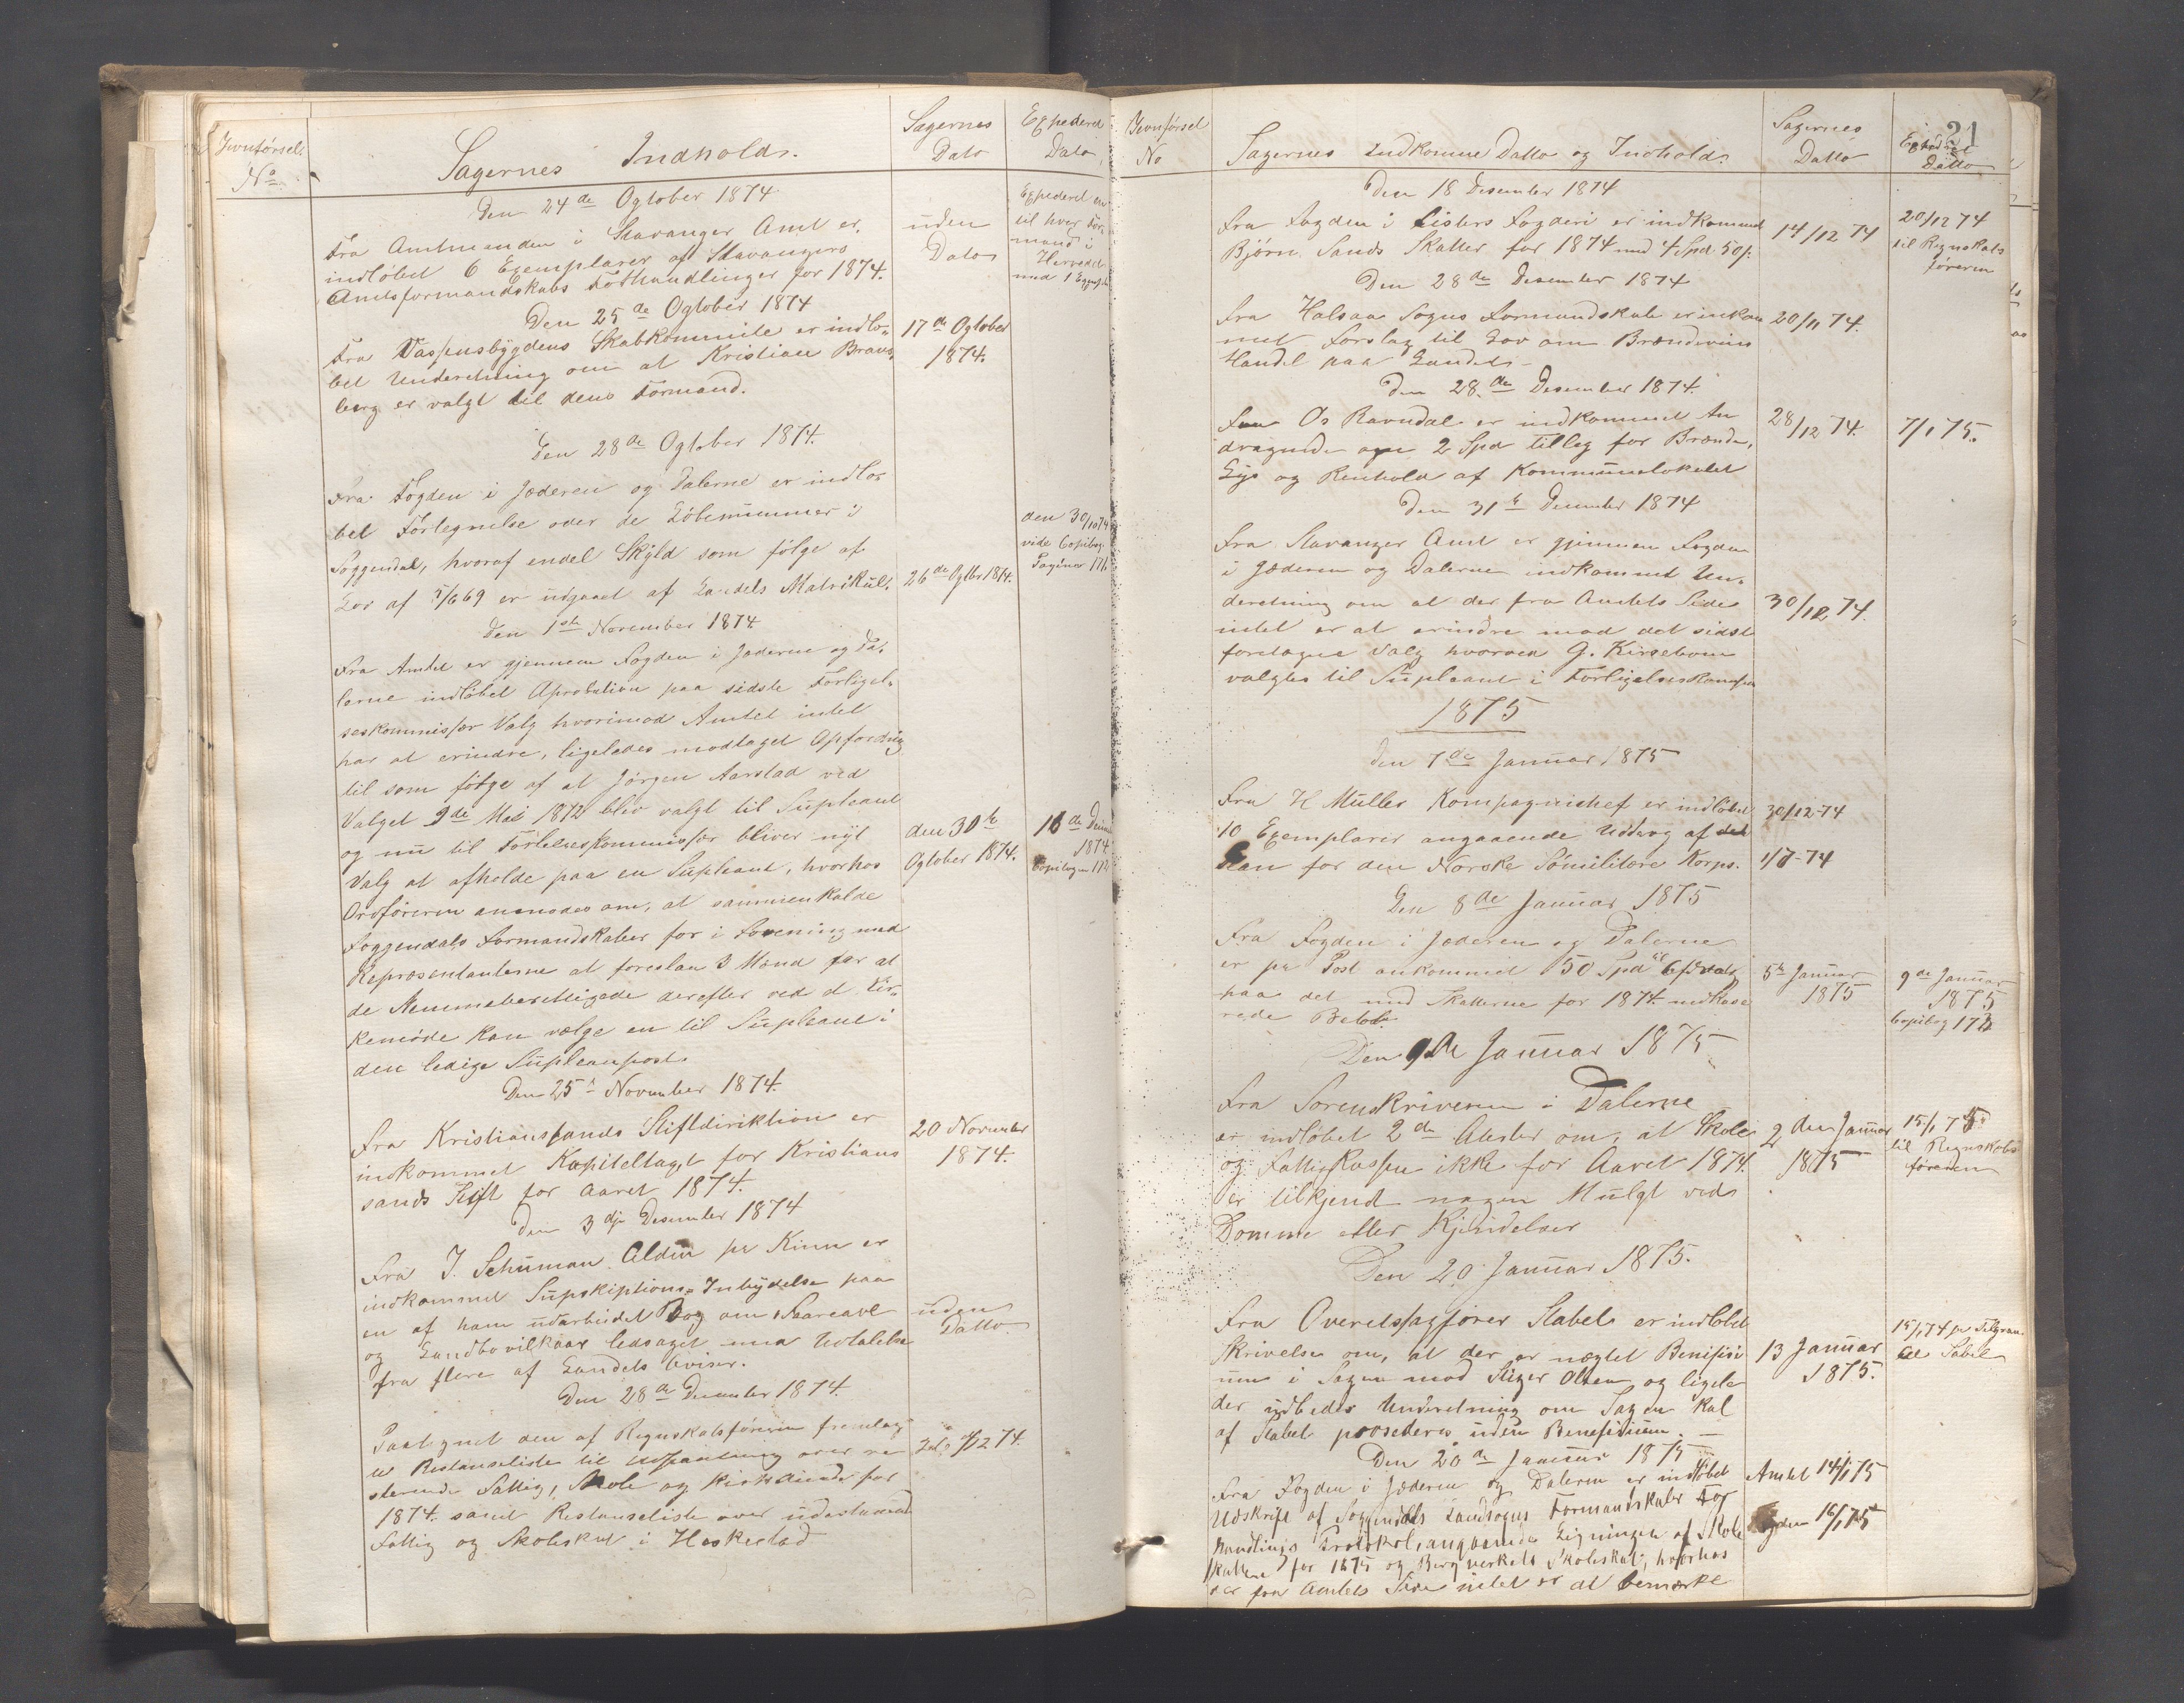 Jevnførsels
No
Sagernes Indhold.
Sagernes
Dato
Expederet
Dato
Den 24de Ogtober 1874
Fra Amtmanden i Stavanger Amt er
indløbet 6 Exemplarer af Stavangers
Amtsformandskabs Forhandlinger for 1874.
uden
Dato
Expederet en
til hver For-
mand i
Herredet
med 1 Exempl
Den 25de Ogtober 1874
Fra Skabkommite er indlø-
bet Underetning om at Kristian Braus
berg er valgt til dens Formand.
17de Ogtober
1874.
Den 28de Ogtober 1874.
Fra Fogden i Jæderen og Dalerne er indlø
bet Fortegnelse over de Løbenummer i
Soggendal, hvoraf endel Skyld som følge af
Lov af 5/6 69 er udgaaet af Landets Matrikul.
26de Ogtbr 1874.
den 30/10 74
vide Copibog
Pagina 171
Den 1ste November 1874
Fra Amtet er gjennem Fogden i Jæderen og Da-
lerne indløbet Aprobation paa sidste Forligel-
seskommissær Valg hvorimod Amtet intet
har at erindre, ligeledes modtaget Opfordring
til som følge af at Jørgen Aarstad ved
Valget 9de Mai 1872 blev valgt til Supleant
og nu til Forlelseskommissær bliver nyt
Valg at afholde paa en Supleant, hvorhos
Ordføreren anmodes om, at sammenkalde
Soggendals Formandskaber for i Forening med
Repræsentanterne at foreslaa 3 Mænd før at
de Stemmeberettigede derefter ved et Kir-
kemøde kan vælge en til Supleant i
den ledige Supleanpost
den 30te
Ogtober 1874.
16de
1874
Copibogen 172
Den 25 November 1874.
Fra Kristianssands Stiftdiriktion er
indkommet Kapiteltagst for Kristians
sands Stift for Aaret 1874.
20 November
1874.
Den 3dje Desember 1874
Fra J. Schuman Aldin pr Kinn er
indkommet Supskiptions-Inbydelse paa
en af ham udarbeidet Bog om Faareavl
og Landbovilkaar ledsaget med Udtalelse
fra flere af Landets Aviser.
uden
Datto
Den 28de December 1874.
Paategnet den af Regnskabsføreren fremlag
te Restanseliste til Udpantning over re
sterende Fattig, Skole og Kirkskatte for
1874. samt Restanseliste over udestaaende
Fattig og Skoleskat i Heskestad
7/12 74.
Jevnførsel
No
Sagernes Indkomne Datto og Indhold.
Sagernes
Datto
21
Expederet
Datto
Den 18 Desember 1874
Fra Fogden i Listers Fogderi er indkommet
Bjørn Sands Skatter for 1874 med 4 Spd 50 s.
14/12 74
20/12 74
til Regnskabs
føreren
Den 28de Desember 1874
Fra Halsaa Sogns Formandskab er inkom
met Forslag til Lov om Brændevins
Handel paa Landet.
20/11 74.
Den 28.de Desember 1874.
Fra Os Ravndal er indkommet An
dragende om 2 Spd Tillæg for Brænde,
Lys og Renhold af Kommunelokalet
28/12 74.
7/1 75.
Den 31te December 1874
Fra Stavanger Amt er gjennem Fogden
i Jæderen og Dalerne indkommet Un-
deretning om at der fra Amtets Side
intet er at erindre mod det sidst
foretagne Valg hvorved G. Kirsebom
valgtes til Supleant i Forligelseskomm
30/12 74.
1875
Den 7de Januar 1875
Fra H Müller Kompagnichef er indløbet
10 Exemplarer angaaende Uddrag af
Plan for den Norske Sømilitære Korps.
30/12-74
1/7-74
Den 8de Januar 1875
Fra Fogden i Jæderen og Dalerne
er pr Post ankommet 50 Spd
paa det med Skatterne for 1874 indkase
rede Beløb.
5te Januar
1875
9de Januar
1875
Copibog 173
Den 9de Januar 1875
Fra Sorenskriveren i Dalerne
er indløbet 2de Atester om, at Skole
og Fattigkassen ikke for Aaret 1874
er tilkjendt nogen Mulgt ved
Domme eller Kjendelser
2den Januar
1875
15/1 75
til Regnskabs
føreren
Den 20 Januar 1875.
Fra Overetssagfører Stabel er indløbet
Skrivelse om, at der er nægtet Benifisi
um i Sagen mod Olsen og ligele
der udbedes Underetning om Sagen kal
af Stabel prosederes uden Benefisium. —
13 Januar
1875.
15/1 74 pr Telgram
til Stabel
Den 20de Januar 1875
Fra Fogden i Jæderen og Dalerne er indløbet
Udskrift af Soggendals Landsogns Formandskabs For
handlings Protokol, angaaende Ligningen af Skole
skatten for 1875 og Bergverkets Skoleskat, hvorhos
der fra Amtets Side intet er at bemærke
Amtet 14/1 75
Fogden 16/1 75